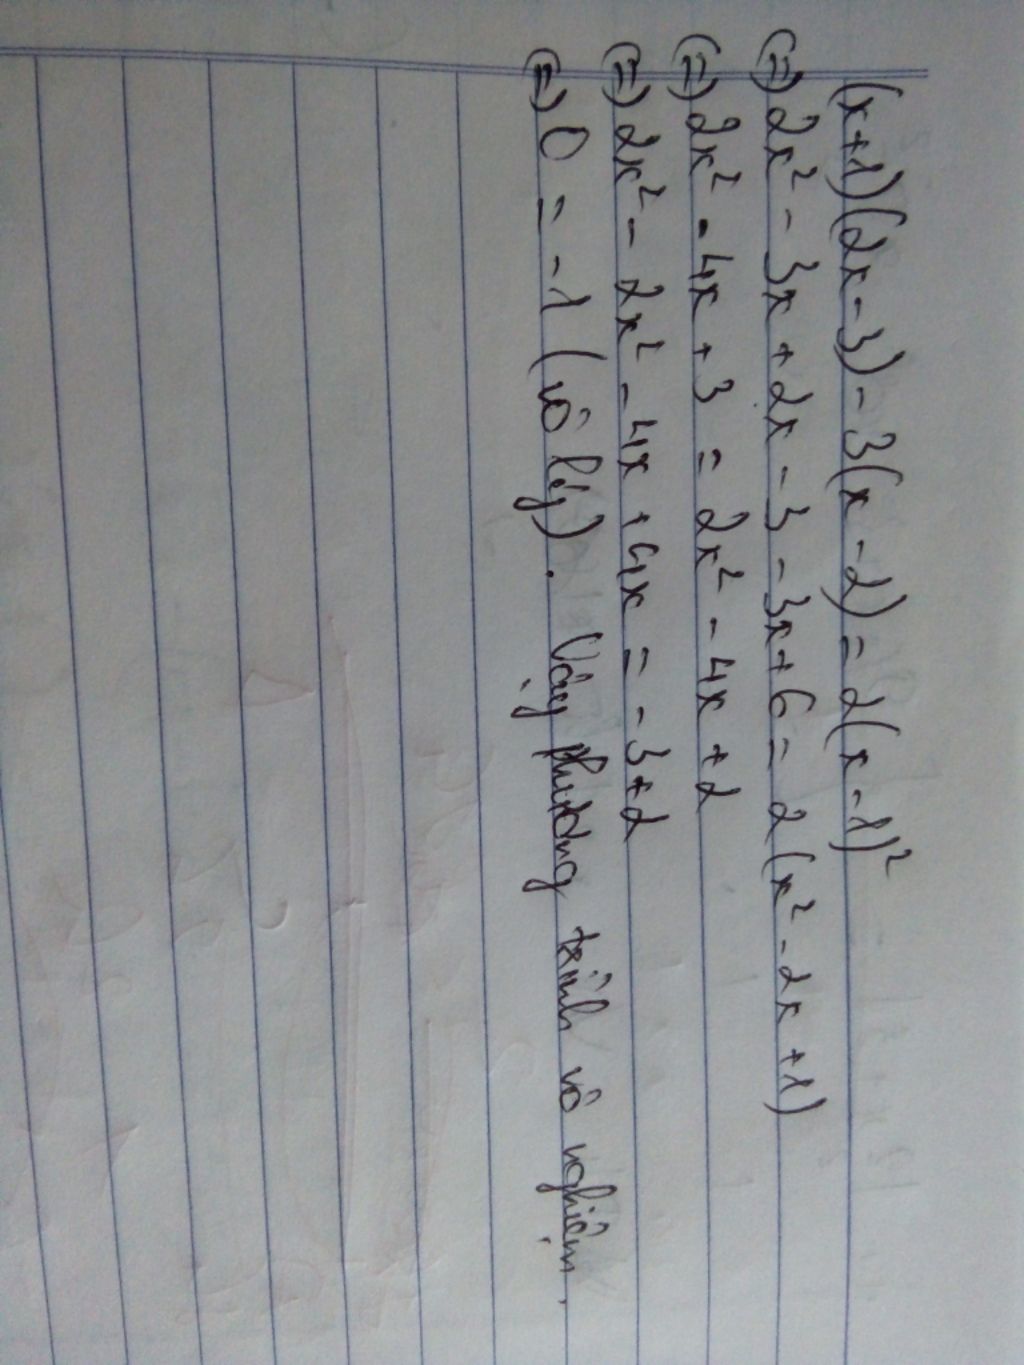 (x+1)(2x-3)-3(x-2)=2(x-1)²
(=) 2x² - 3x + 2x - 3 - 3x + 6 = 2(x² - 2x + 1)
(=) 2x² - 4x + 3 = 2x² - 4x + 2
(=) 2x² - 2x² - 4x + 4x = -3+2
(=) 0 = -1 (vô lý). Vậy phương trình vô nghiệm.